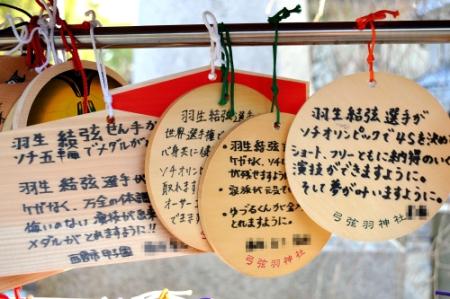 羽生 結弦せん手が
ソチ五輪でメダルが
羽生 結弦選手が
ケガなく、万全の体調
悔いのない演技ができ
メダルがとれますように!!
西宮市 甲子園
羽生結弦選手
世界選手権
ソチオリン
取れます
オーサー
できます
羽生結弦
ケガなく、ソチ
ゆづるくんが
とれますように。
弓弦羽神社
羽生 結弦 選手が
ソチオリンピックで 4Sを決め
ショート、フリーともに納得のいく
演技ができますように。
そして夢が叶いますように。
弓弦羽神社